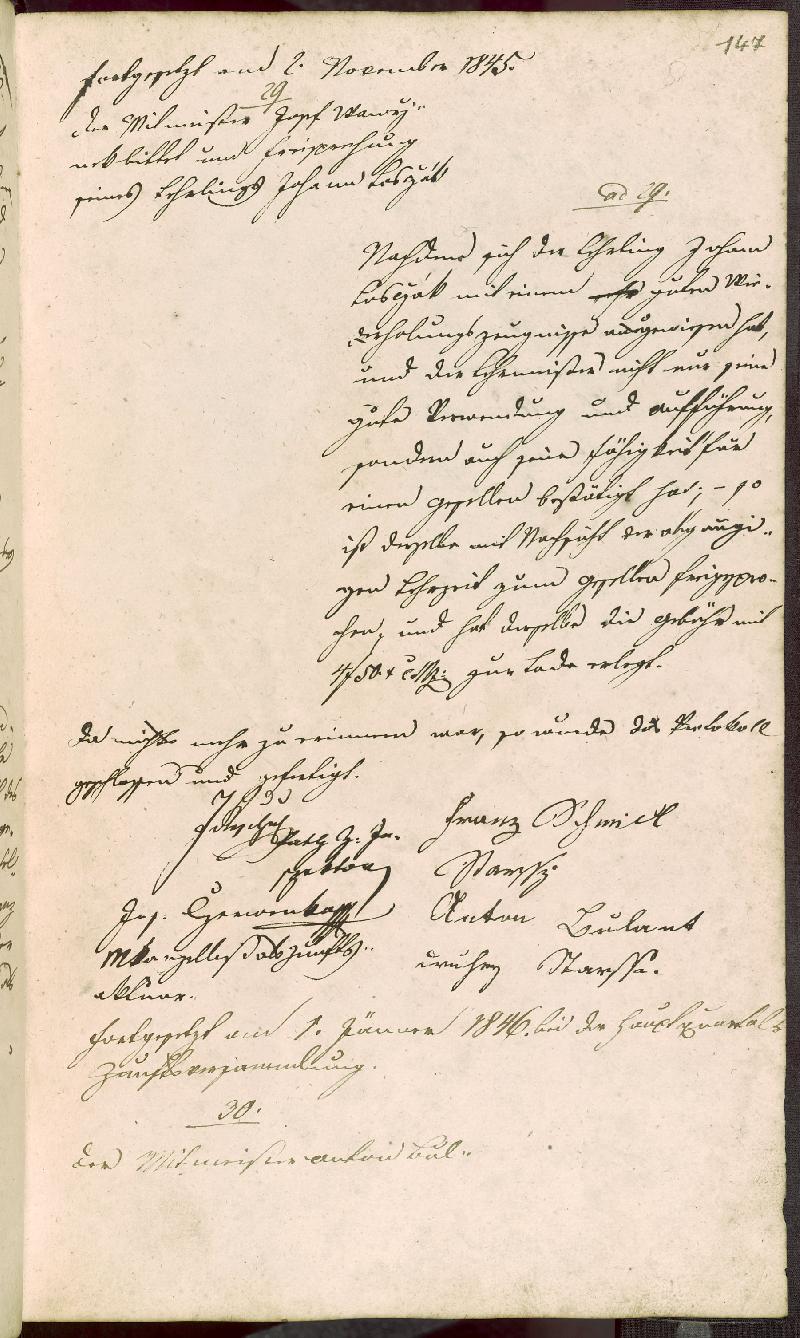 147
fortgesetzt am 2. November 1845.
29
der Mitmeister Josef Wawrÿ-
nek bittet um Freisprechung
seines Lehrlings Johann Losẏák
ad 29.
Nachdem sich der Lehrling Johann
Losẏák mit einem guten Wie-
derholungszeugnisse ausgewiesen hat,
und der Lehrmeister nicht nur seine
gute Verwendung und Aufführung,
sondern auch seine Fähigkeit für
einen Gesellen bestätigt hat; – so
ist derselbe mit Nachsicht der abgängi-
gen Lehrzeit zum Gesellen freigespro-
chen, und hat derselbe die Gebühr mit
4f 50 x CMz: zur Lade erlegt.
Da nichts mehr zu erinnern war, so wurde das Protokoll
geschlossen und gefertigt.
Franz Schmiedl
Rath Z. In-
spektor
Starssi
Jos.
Anton Bulant
als Zunfts-
druhey Starssi.
aktuar.
Fortgesetzt am 1. Jänner 1846. bei der Hauptquartals
Zunftsversammlung.
30.
Der Mitmeister Anton Bul-